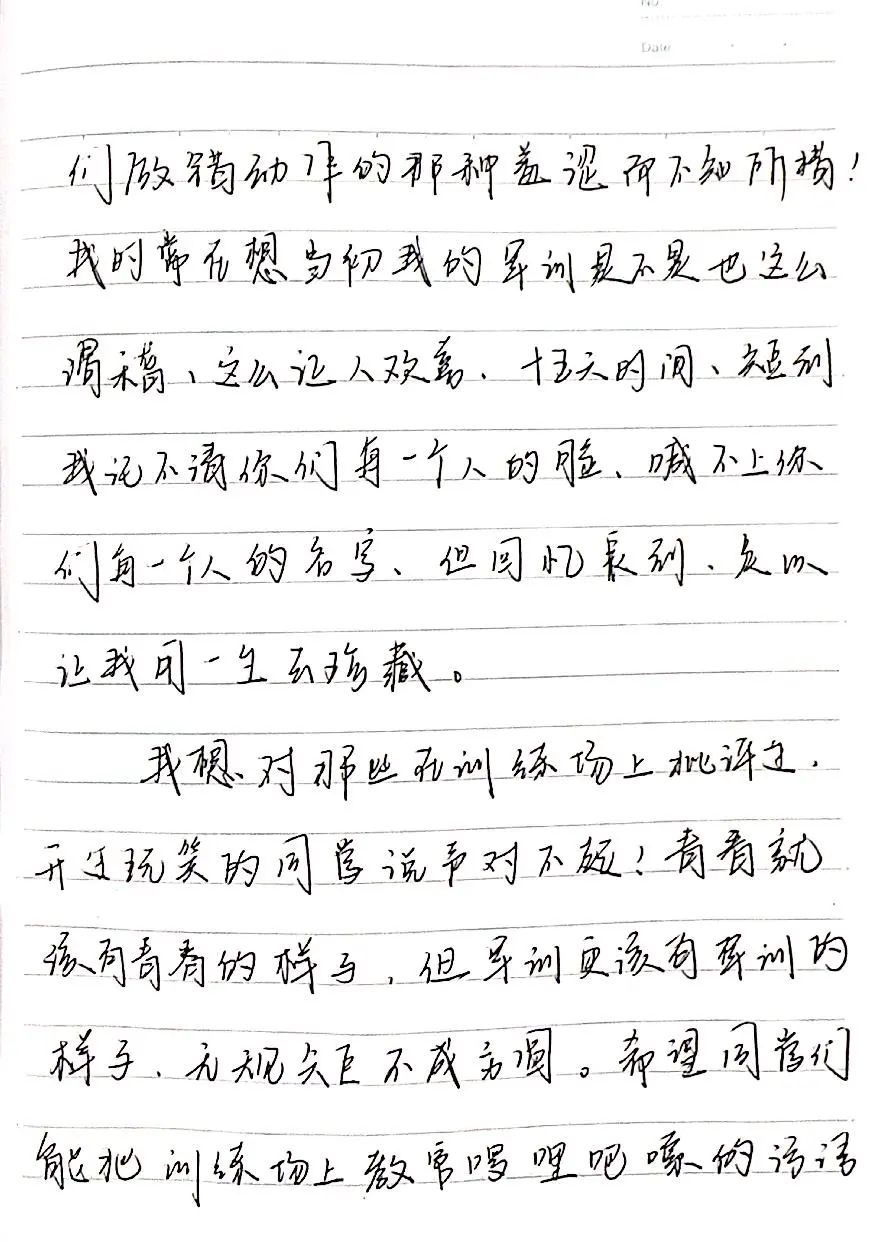 No
Date
们做错动作的那种羞涩而不知所措！
我时常在想当初我的军训是不是也这么
滑稽、这么让人欢喜. 十五天时间、短到
我记不清你们每一个人的脸、喊不上你
们每一个人的名字、但回忆长到、足以
让我用一生去珍藏。
我想对那些在训练场上批评过.
开过玩笑的同学说声对不起！青春就
该有青春的样子. 但军训更该有军训的
样子. 无规矩不成方圆。希望同学们
能把训练场上教官唱哩吧嗦的话语